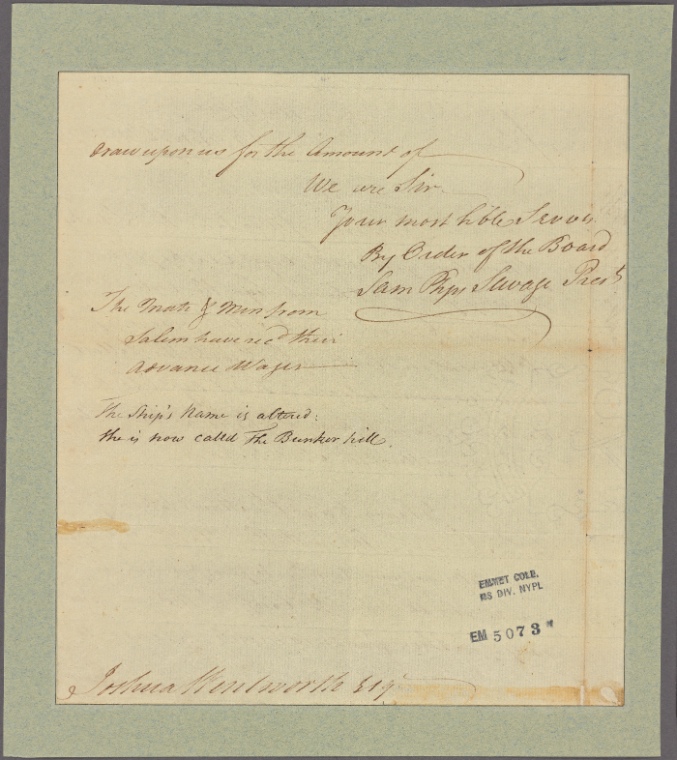 draw upon us for the Amount of
We are Sir
Your most hble Servts
By Order of the Board
Sam Phps Savage Prest
The Mate & Men from
Salem have recd their
Advance Wages
The Ship's Name is altered:
she is now called The Bunker hill.
EMMET COLL.
MS DIV. NYPL
EM 5073
Joshua Wentworth Esqr